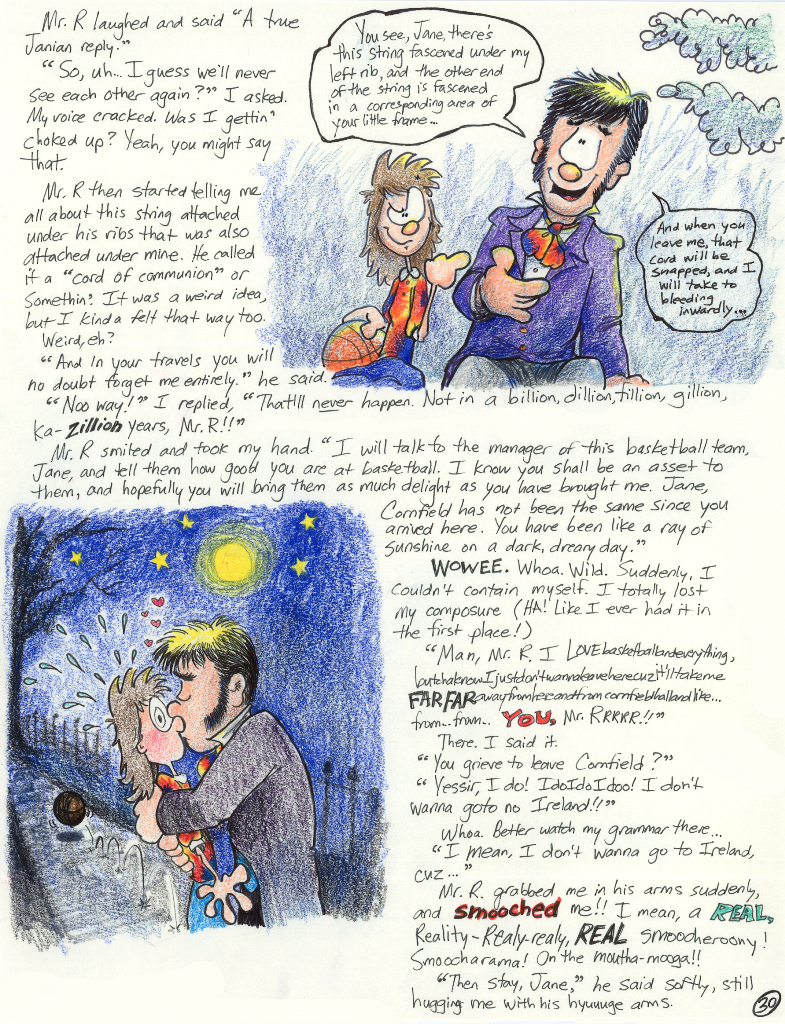 Mr. R laughed and said "A true
Janian reply."
"So, uh... I guess we'll never
see each other again?" I asked.
My voice cracked. Was I gettin'
choked up? Yeah, you might say
that.
Mr. R then started telling me
all about this string attached
under his ribs that was also
attached under mine. He called
it a "cord of communion" or
somethin'. It was a weird idea,
but I kinda felt that way too.
Weird, eh?
"And in your travels you will
no doubt forget me entirely." he said.
You see, Jane, there's
this string fascened under my
left rib, and the other end
of the string is fascened
in a corresponding area of
your little frame...
And when you
leave me, that
cord will be
snapped, and I
will take to
bleeding
inwardly...
"Noo way!" I replied, "That'lll never happen. Not in a billion, dillion, tillion, gillion,
ka-zillion years, Mr. R!!"
Mr. R smiled and took my hand. "I will talk to the manager of this basketball team,
Jane, and tell them how good you are at basketball. I know you shall be an asset to
them, and hopefully you will bring them as much delight as you have brought me. Jane,
Cornfield has not been the same since you
arrived here. You have been like a ray of
sunshine on a dark, dreary day."
WOWEE. Whoa. Wild. Suddenly, I
couldn't contain myself. I totally lost
my composure (HA! Like I ever had it in
the first place!)
"Man, Mr. R, I LOVE basketballandeverything,
butchaknowIjustdon'twannaleaveherecuzit'lltakeme
FAR FAR awayfromhereandfromcornfieldhallandlike...
from..from.. YOU, Mr. RRRRR!!"
There. I said it.
"You grieve to leave Cornfield?"
"Yessir, I do! IdoIdoIdoo! I don't
wanna goto no Ireland!!"
Whoa. Better watch my grammar there...
"I mean, I don't wanna go to Ireland,
cuz..."
Mr. R. grabbed me in his arms suddenly,
and smooched me!! I mean, a REAL,
Reality-Realy-realy, REAL smoocheroony!
Smoocharama! On the moutha-mooga!!
"Then stay, Jane," he said softly, still
hugging me with his hyuuuge arms.
30